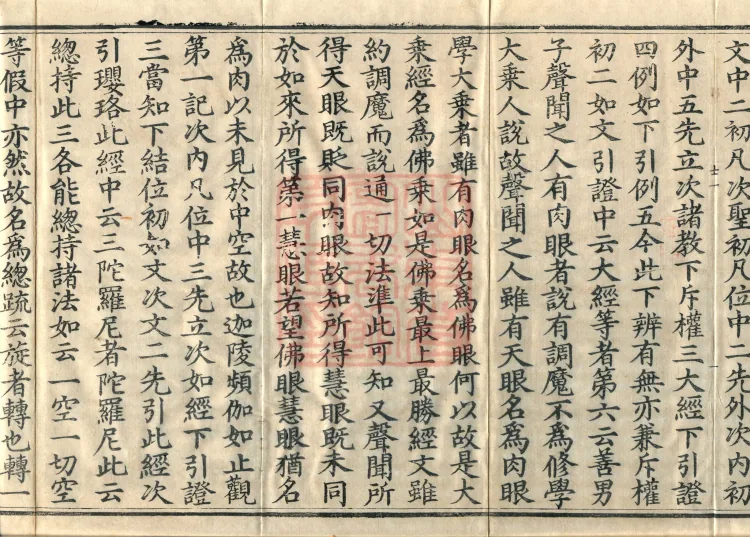 文中二初凡次聖初凡位中二先外次内初
外中五先立次諸教下斥權三大經下引證
四例如下引例五今此下辨有無亦兼斥權
初二如文引證中云大經等者第六云善男
子聲聞之人有肉眼者說有調魔不爲修學
大乘人說故聲聞之人雖有天眼名爲肉眼
學大乘者雖有肉眼名爲佛眼何以故是大
乘經名爲佛乘如是佛乘最上最勝經文雖
約調魔而說通一切法準此可知又聲聞所
得天眼既貶同肉眼故知所得慧眼既未同
於如來所得第一慧眼若望佛眼慧眼猶名
爲肉以未見於中空故也迦陵頻伽如止觀
第一記次内凡位中三先立次如經下引證
三當知下結位初如文次文二先引此經次
引瓔珞此經中云三陀羅尼者陀羅尼此云
總持此三各能總持諸法如云一空一切空
等假中亦然故名爲總疏云旋者轉也轉一